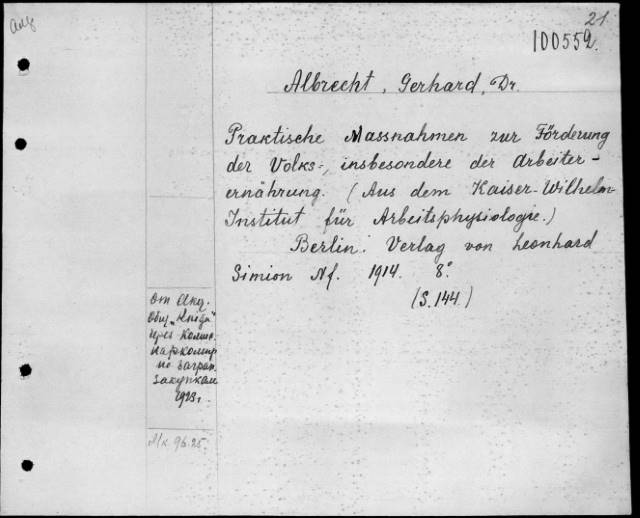 21
100552.
Albrecht, Gerhard, Dr.
Praktische Massnahmen zur Förderung
der Volks-, insbesondere der Arbeiter-
ernährung. (Aus dem Kaiser-Wilhelm-
Institut für Arbeitsphysiologie.)
Berlin: Verlag von Leonhard
Simion Nf. 1914. 8°.
(S. 144.)
От Акц.
Общ. „Книга"
через Комис.
Наркомпр
по загран.
закупкам
1923 г.
96.25.